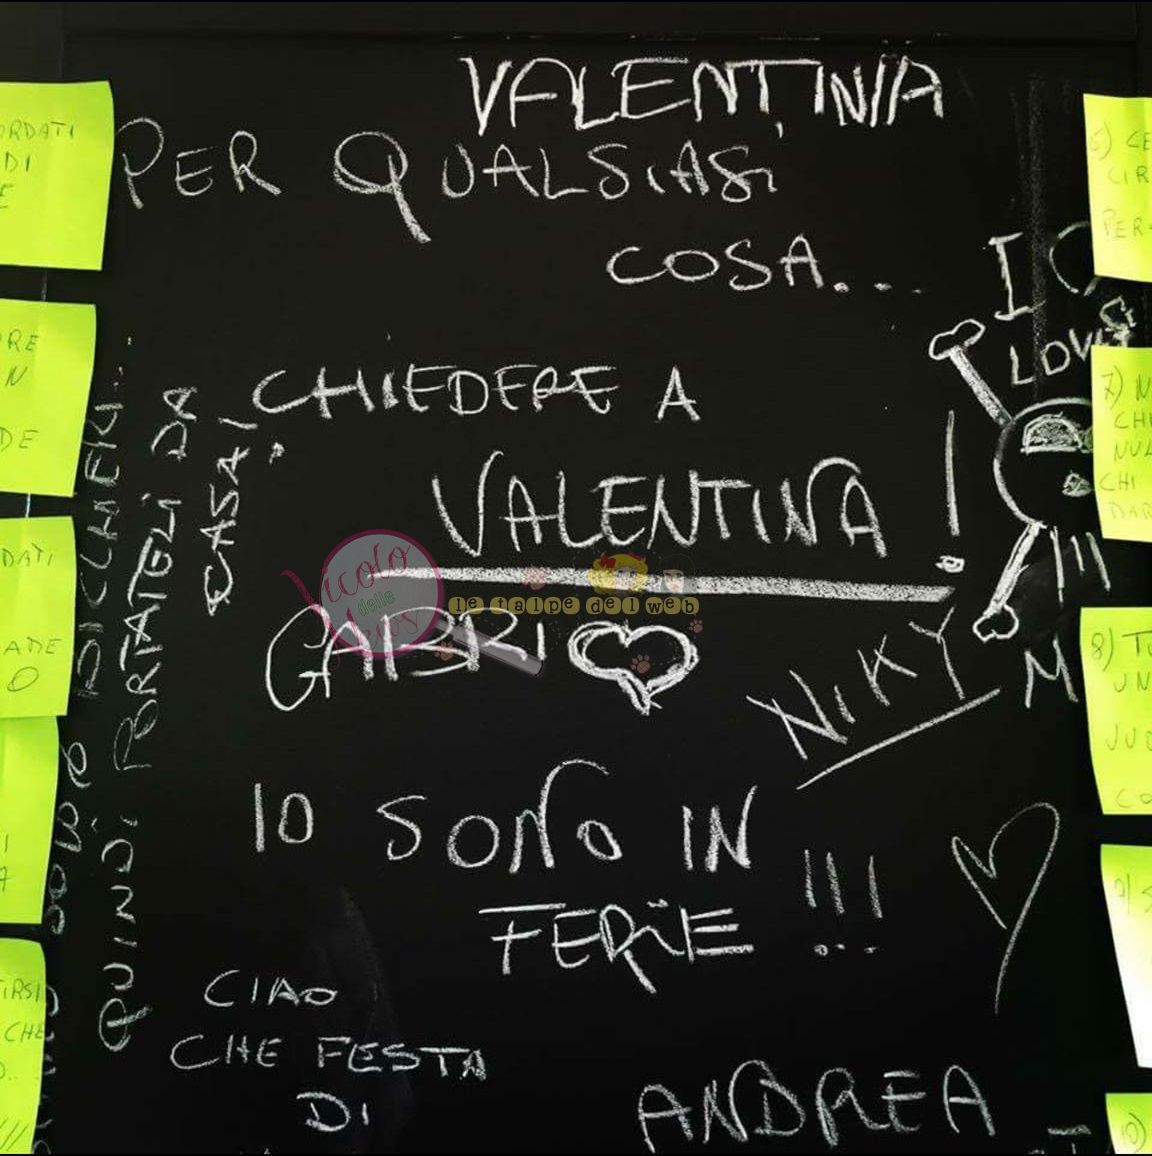 VALENTINA
PER QUALSIASI
COSA...
CHIEDERE A
VALENTINA!
GABRI
NIKY
IO SONO IN
FERIE !!!
CIAO
CHE FESTA
DI
ANDREA
I
LOVE
M
SOLO DICIAMERI..
QUINDI PORTATELI DA
CASA!
ORDATI
DI
E
RE
N
DE
DATI
ADE
O
I
A
IRSI
CHE
O..
!!!
5) CE
CIR
PER
7) N
CHI
NUL
CHI
DAR
8) TU
UN
JUO
CO
9) S
10)
Vicolo
delle
News
le talpe del web